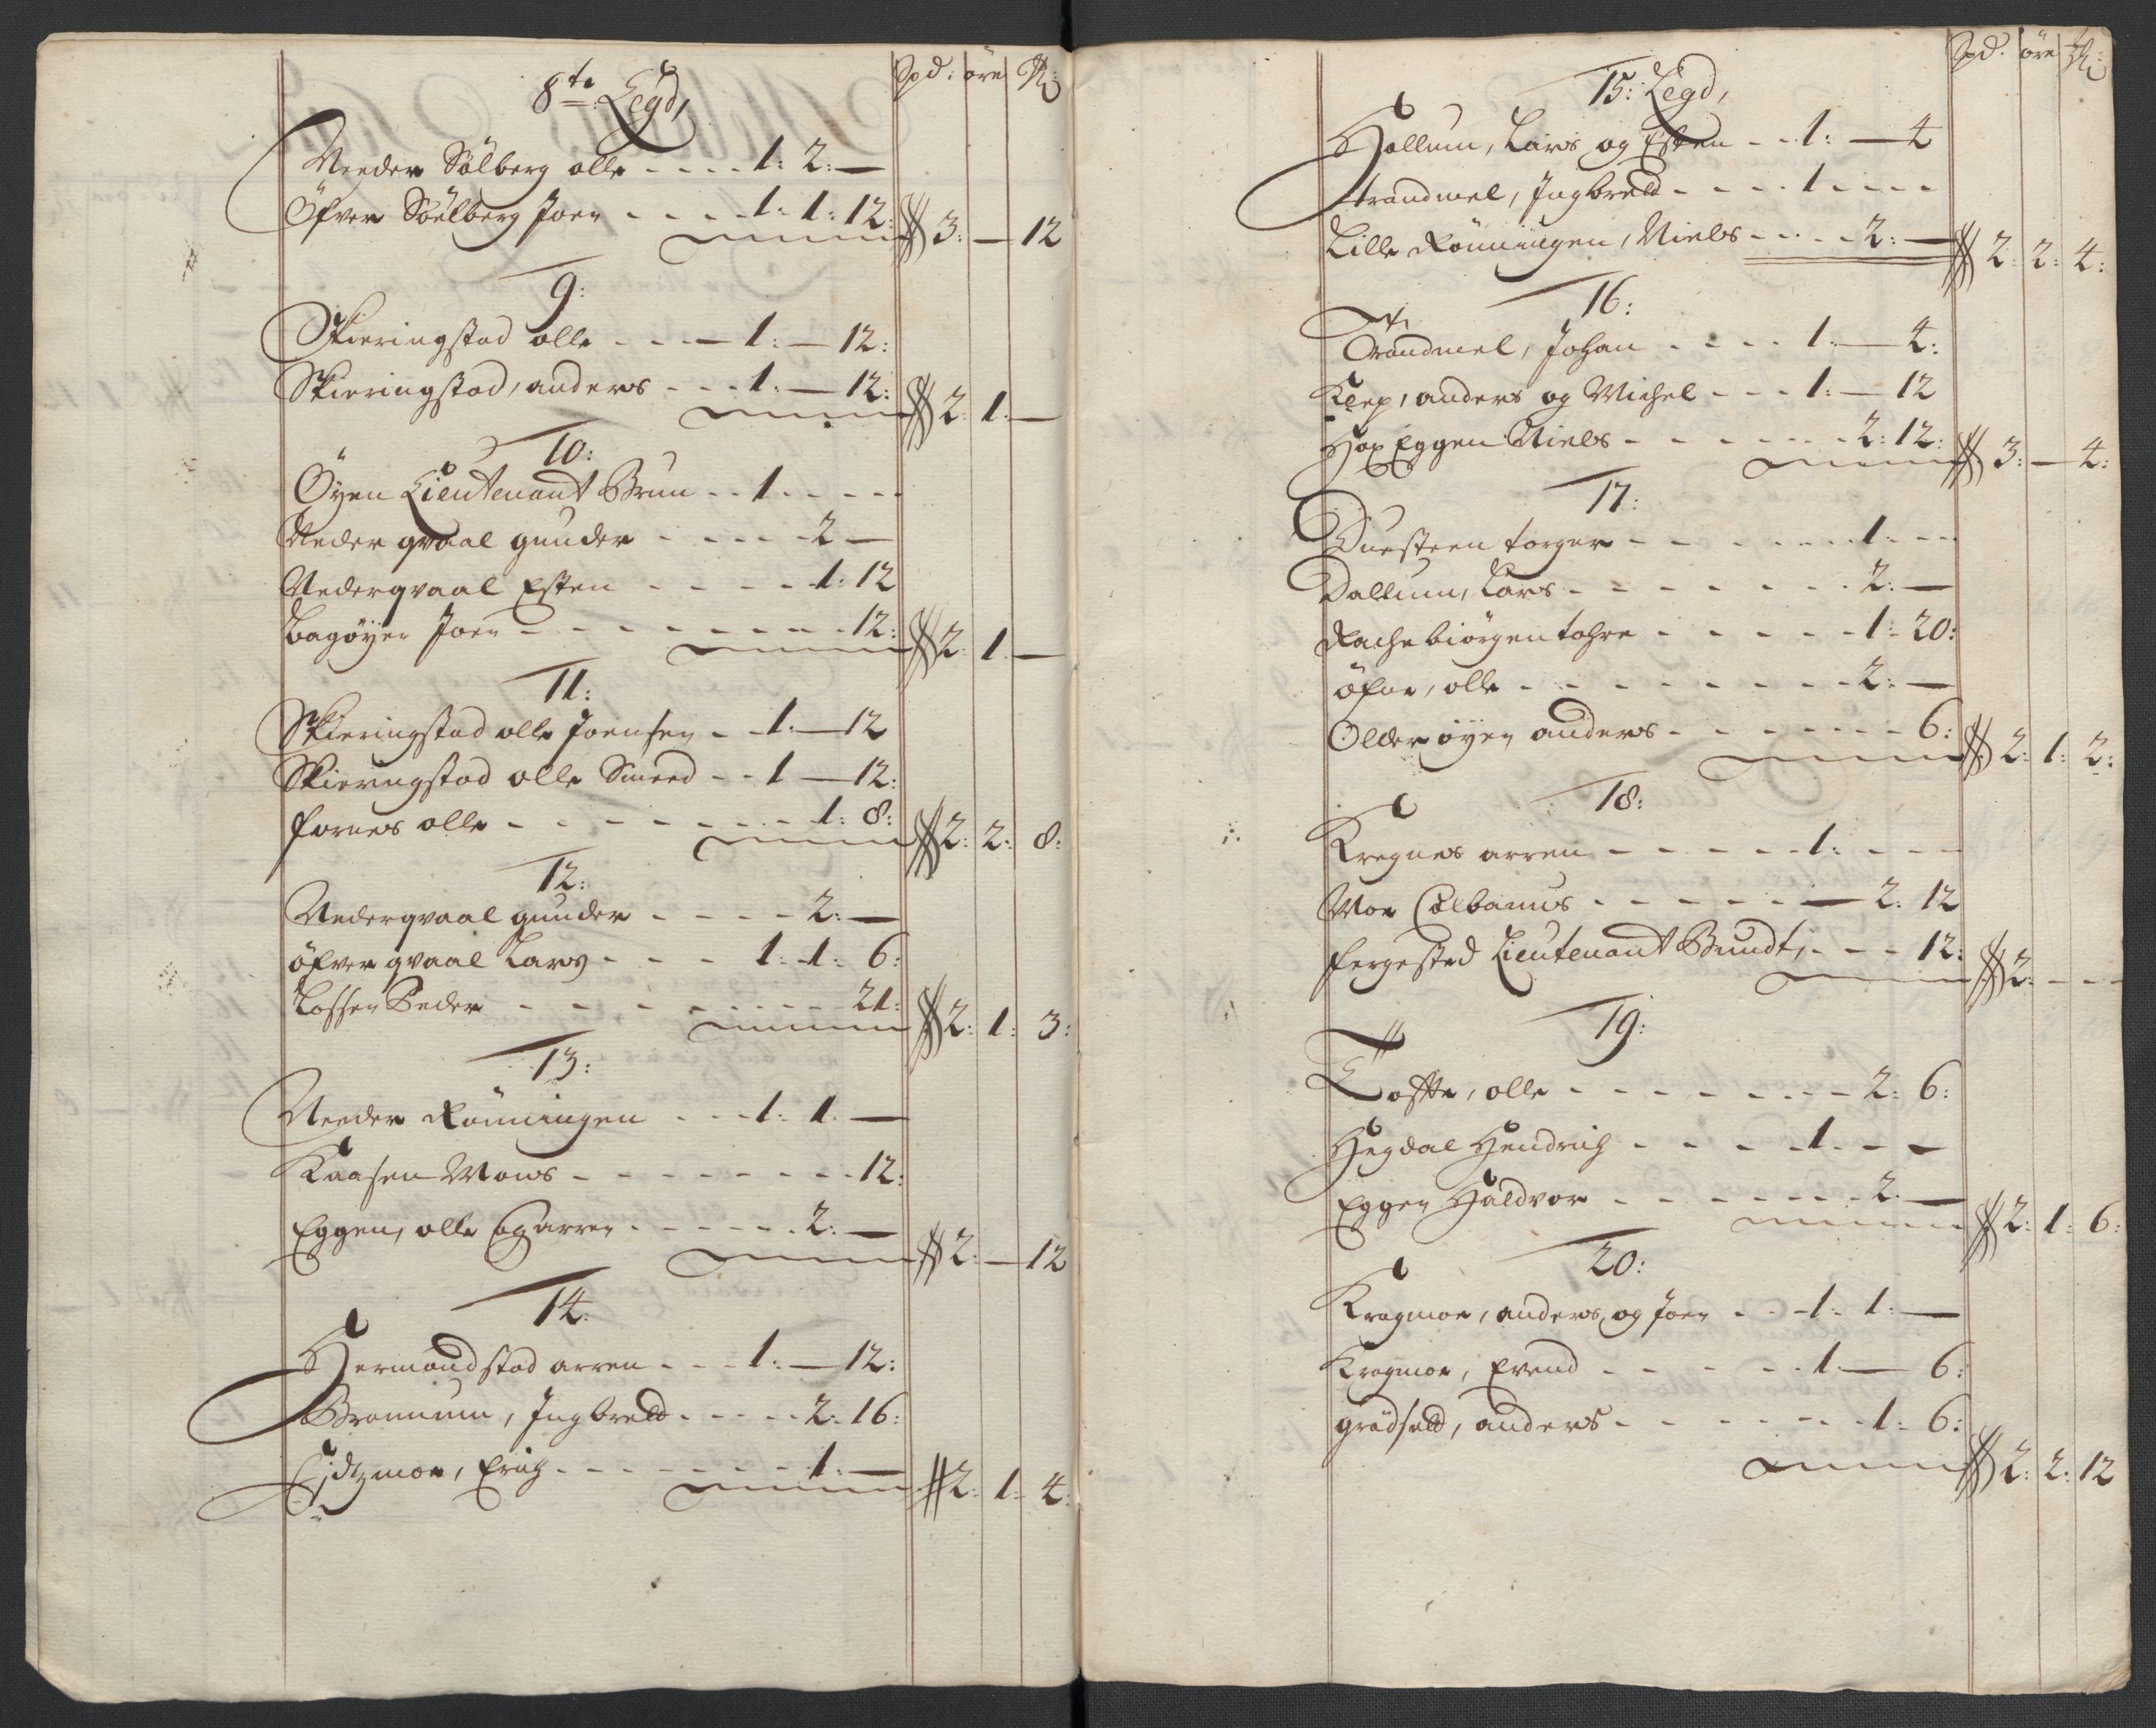 Spd: öre
8te Legd,
Neder Sölberg olle - - - - 1: 2: —
Öfver Söelberg Joen - - - - 1: 1: 12: 3: — 12
9:
Skieringstad olle - - - 1: — 12:
Skieringstad, anders - - - 1: — 12: 2: 1: —
10:
Öyen Lieutenant Brun - - 1 - - - -
Neder qvaal gunder - - - - 2 —
Nederqvaal Esten - - - - 1: 12
Bagöyen Joen - - - - - - - - 12: 2: 1: —
11:
Skieringstad olle Joensen - - 1: — 12
Skieringstad olle Smeed - - 1 — 12:
fornes olle - - - - - - - - 1: 8: 2: 2: 8:
12:
Nederqvaal gunder - - - - 2: —
öfver qvaal Lars - - - 1: 1: 6:
Lossen Peder - - - - - - - - 21: 2: 1: 3:
13:
Neder Rönningen - - - 1: 1: —
Kaasen Mons - - - - - - - 12:
Eggen, olle og arren - - - - - 2: — 2: — 12
14:
Hermandstad arren - - - 1: — 12:
Bronnum, Ingbret - - - - - 2: 16:
Eidzmoe, Erich - - - - - - - 1: — 2: 1: 4:
Spd: öre
15: Legd,
Hollum, Lars og Esten - - 1: — 4
trandmel, Ingbret - - - - 1 - - - -
Lille Rönningen, Niels - - - - 2: — 2: 2: 4:
16:
Trandmel, Johan - - - - 1: — 4:
Klep, anders og Michel - - - 1: — 12
Hop Eggen Niels - - - - - - - 2: 12: 3: — 4:
17:
Duesteen torger - - - - - - - 1 - - -
Dallum, Lars - - - - - - - - 2: —
Rachebiörgen tohre - - - - - 1: 20:
öfne, olle - - - - - - - - - 2: —
Older öyen anders - - - - - - - 6: 2: 1: 2:
18:
Kregnes arren - - - - - 1: - - -
Moe Colbanus - - - - - — 2: 12
fergested Lieutenant Bundt, - - - 12: 2: - - -
19:
Tofte, olle - - - - - - - - 2: 6:
Hegdal Hendrich - - - - 1 - - -
Eggen Haldvor - - - - - - - 2: — 2: 1: 6:
20:
Kragmoe, anders og Joen - - - 1: 1: —
Kragmoe, Evend - - - - - - 1: — 6:
grödsett, anders - - - - - - - 1: 6:
2: 2: 12